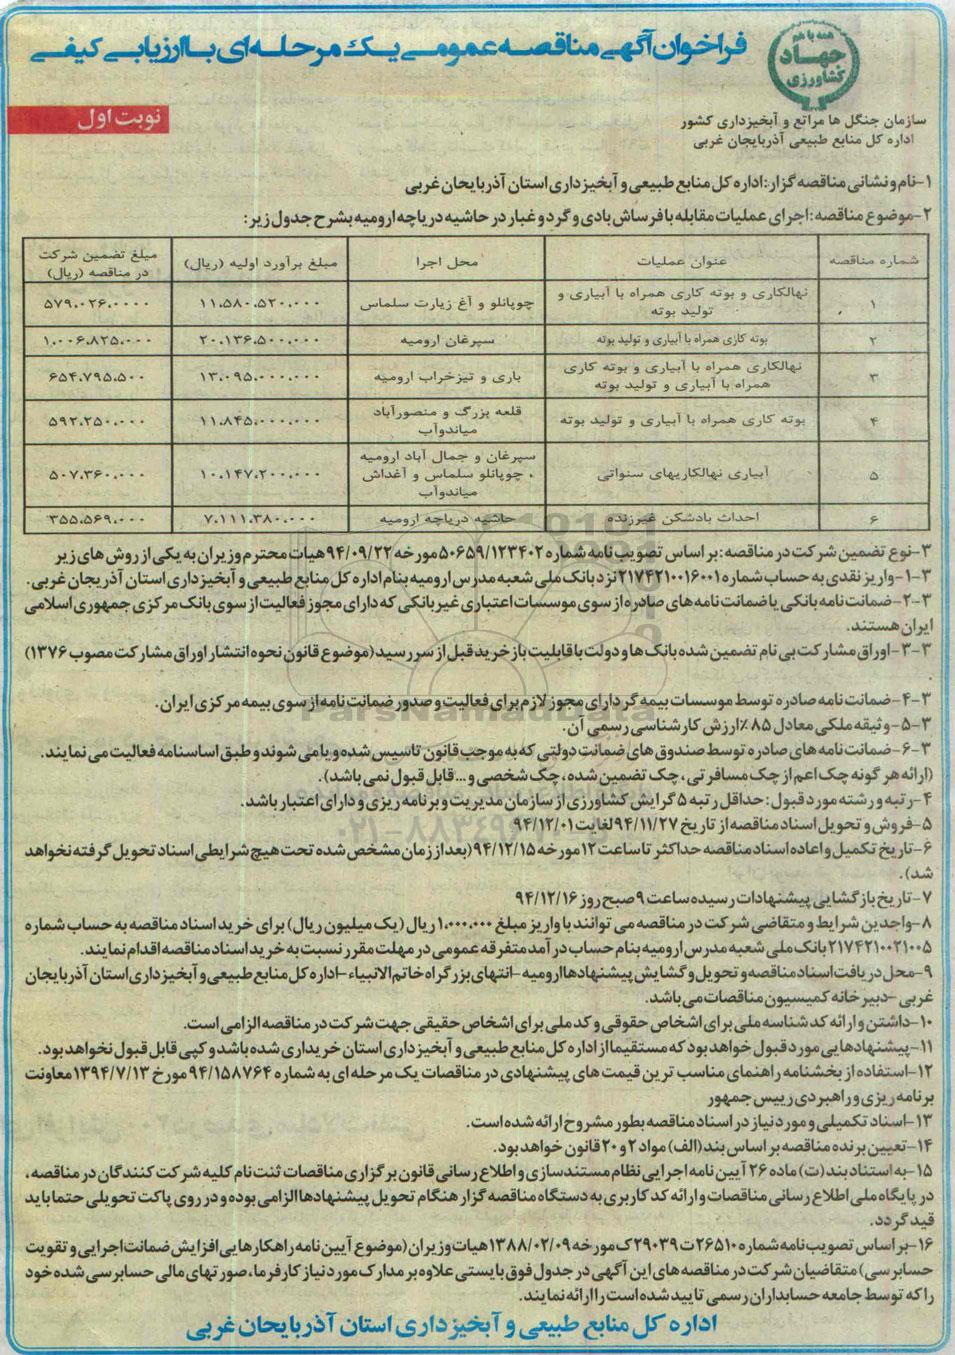 همه با هم
جهاد
کشاورزی
فراخوان آگهی مناقصه عمومی یک مرحله‌ای با ارزیابی کیفی
نوبت اول
سازمان جنگل ها مراتع و آبخیزداری کشور
اداره کل منابع طبیعی آذربایجان غربی
۱-نام و نشانی مناقصه گزار: اداره کل منابع طبیعی و آبخیزداری استان آذربایجان غربی
۲-موضوع مناقصه: اجرای عملیات مقابله با فرسایش بادی و گرد و غبار در حاشیه دریاچه ارومیه بشرح جدول زیر:
شماره مناقصه | عنوان عملیات | محل اجرا | مبلغ برآورد اولیه (ریال) | مبلغ تضمین شرکت در مناقصه (ریال)
۱ | نهالکاری و بوته کاری همراه با آبیاری و تولید بوته | چوپانلو و آغ زیارت سلماس | ۱۱،۵۸۰،۵۲۰،۰۰۰ | ۵۷۹،۰۲۶،۰۰۰۰
۲ | بوته کاری همراه با آبیاری و تولید بوته | سپرغان ارومیه | ۲۰،۱۳۶،۵۰۰،۰۰۰ | ۱،۰۰۶،۸۲۵،۰۰۰
۳ | نهالکاری همراه با آبیاری و بوته کاری همراه با آبیاری و تولید بوته | باری و تیزخراب ارومیه | ۱۳،۰۹۵،۰۰۰،۰۰۰ | ۶۵۴،۷۹۵،۵۰۰
۴ | بوته کاری همراه با آبیاری و تولید بوته | قلعه بزرگ و منصورآباد میاندوآب | ۱۱،۸۴۵،۰۰۰،۰۰۰ | ۵۹۲،۲۵۰،۰۰۰
۵ | آبیاری نهالکاریهای سنواتی | سپرغان و جمال آباد ارومیه ، چوپانلو سلماس و آغداش میاندوآب | ۱۰،۱۴۷،۲۰۰،۰۰۰ | ۵۰۷،۳۶۰،۰۰۰
۶ | احداث بادشکن غیرزنده | حاشیه دریاچه ارومیه | ۷،۱۱۱،۳۸۰،۰۰۰ | ۳۵۵،۵۶۹،۰۰۰
۳-نوع تضمین شرکت در مناقصه: بر اساس تصویب نامه شماره ۵۰۶۵۹/۱۲۳۴۰۲ مورخه ۹۴/۰۹/۲۲ هیات محترم وزیران به یکی از روش های زیر
۳-۱-واریز نقدی به حساب شماره ۲۱۷۴۲۱۰۰۱۶۰۰۱ نزد بانک ملی شعبه مدرس ارومیه بنام اداره کل منابع طبیعی و آبخیزداری استان آذربجان غربی.
۳-۲-ضمانت نامه بانکی یا ضمانت نامه های صادره از سوی موسسات اعتباری غیر بانکی که دارای مجوز فعالیت از سوی بانک مرکزی جمهوری اسلامی
ایران هستند.
۳-۳-اوراق مشارکت بی نام تضمین شده بانک ها و دولت با قابلیت باز خرید قبل از سررسید (موضوع قانون نحوه انتشار اوراق مشارکت مصوب ۱۳۷۶)
.
۳-۴-ضمانت نامه صادره توسط موسسات بیمه گر دارای مجوز لازم برای فعالیت و صدور ضمانت نامه از سوی بیمه مرکزی ایران.
ParsNamadData
۳-۵-وثیقه ملکی معادل ۸۵٪ ارزش کارشناسی رسمی آن.
۳-۶-ضمانت نامه های صادره توسط صندوق های ضمانت دولتی که به موجب قانون تاسیس شده و یا می شوند و طبق اساسنامه فعالیت می نمایند.
(ارائه هر گونه چک اعم از چک مسافرتی، چک تضمین شده، چک شخصی و ... قابل قبول نمی باشد).
۴-رتبه و رشته مورد قبول: حداقل رتبه ۵ گرایش کشاورزی از سازمان مدیریت و برنامه ریزی و دارای اعتبار باشد.
۵-فروش و تحویل اسناد مناقصه از تاریخ ۹۴/۱۱/۲۷ لغایت ۹۴/۱۲/۰۱
۶-تاریخ تکمیل و اعاده اسناد مناقصه حداکثر تا ساعت ۱۲ مورخه ۹۴/۱۲/۱۵ (بعد از زمان مشخص شده تحت هیچ شرایطی اسناد تحویل گرفته نخواهد
شد).
۷-تاریخ بازگشایی پیشنهادات رسیده ساعت ۹ صبح روز ۹۴/۱۲/۱۶
۸-واجدین شرایط و متقاضی شرکت در مناقصه می توانند با واریز مبلغ ۱،۰۰۰،۰۰۰ ریال (یک میلیون ریال) برای خرید اسناد مناقصه به حساب شماره
۲۱۷۴۲۱۰۰۲۱۰۰۵ بانک ملی شعبه مدرس ارومیه بنام حساب درآمد متفرقه عمومی در مهلت مقرر نسبت به خرید اسناد مناقصه اقدام نمایند.
۹-محل دریافت اسناد مناقصه و تحویل و گشایش پیشنهادها ارومیه -انتهای بزرگراه خاتم الانبیاء-اداره کل منابع طبیعی و آبخیزداری استان آذربایجان
غربی -دبیرخانه کمیسیون مناقصات می باشد.
۱۰-داشتن و ارائه کد شناسه ملی برای اشخاص حقوقی و کد ملی برای اشخاص حقیقی جهت شرکت در مناقصه الزامی است.
۱۱-پیشنهادهایی مورد قبول خواهد بود که مستقیما از اداره کل منابع طبیعی و آبخیزداری استان خریداری شده باشد و کپی قابل قبول نخواهد بود.
۱۲-استفاده از بخشنامه راهنمای مناسب ترین قیمت های پیشنهادی در مناقصات یک مرحله ای به شماره ۹۴/۱۵۸۷۶۴ مورخ ۱۳۹۴/۷/۱۳ معاونت
برنامه ریزی و راهبردی رییس جمهور
۱۳-اسناد تکمیلی و مورد نیاز در اسناد مناقصه بطور مشروح ارائه شده است.
۱۴-تعیین برنده مناقصه بر اساس بند (الف) مواد ۲ و ۲۰ قانون خواهد بود.
۱۵-به استناد بند (ت) ماده ۲۶ آیین نامه اجرایی نظام مستندسازی و اطلاع رسانی قانون برگزاری مناقصات ثنت نام کلیه شرکت کنندگان در مناقصه،
در پایگاه ملی اطلاع رسانی مناقصات و ارائه کد کاربری به دستگاه مناقصه گزار هنگام تحویل پیشنهادها الزامی بوده و در روی پاکت تحویلی حتما باید
قید گردد.
۱۶-بر اساس تصویب نامه شماره ۲۶۵۱۰ت۲۹۰۳۹ک مورخه ۱۳۸۸/۰۲/۰۹ هیات وزیران (موضوع آیین نامه راهکارهایی افزایش ضمانت اجرایی و تقویت
حسابرسی) متقاضیان شرکت در مناقصه های این آگهی در جدول فوق بایستی علاوه بر مدارک مورد نیاز کارفرما، صورتهای مالی حسابرسی شده خود
را که توسط جامعه حسابداران رسمی تایید شده است را ارائه نمایند.
اداره کل منابع طبیعی و آبخیزداری استان آذربایجان غربی